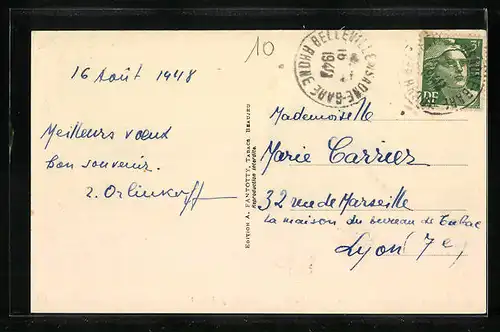 10
BELLEVILLE-S-SAONE-GARE RHONE
16
1948
RF
16 Août 1948
Mademoiselle
Meilleurs vœux
bon souvenir.
Z. Orlinkoff
EDITION A. FANTOTTY, TABACS BEAUJEU
Reproduction interdite.
Marie Carrier
32 rue de Marseille
La maison du bureau de Tabac
Lyon 7e,